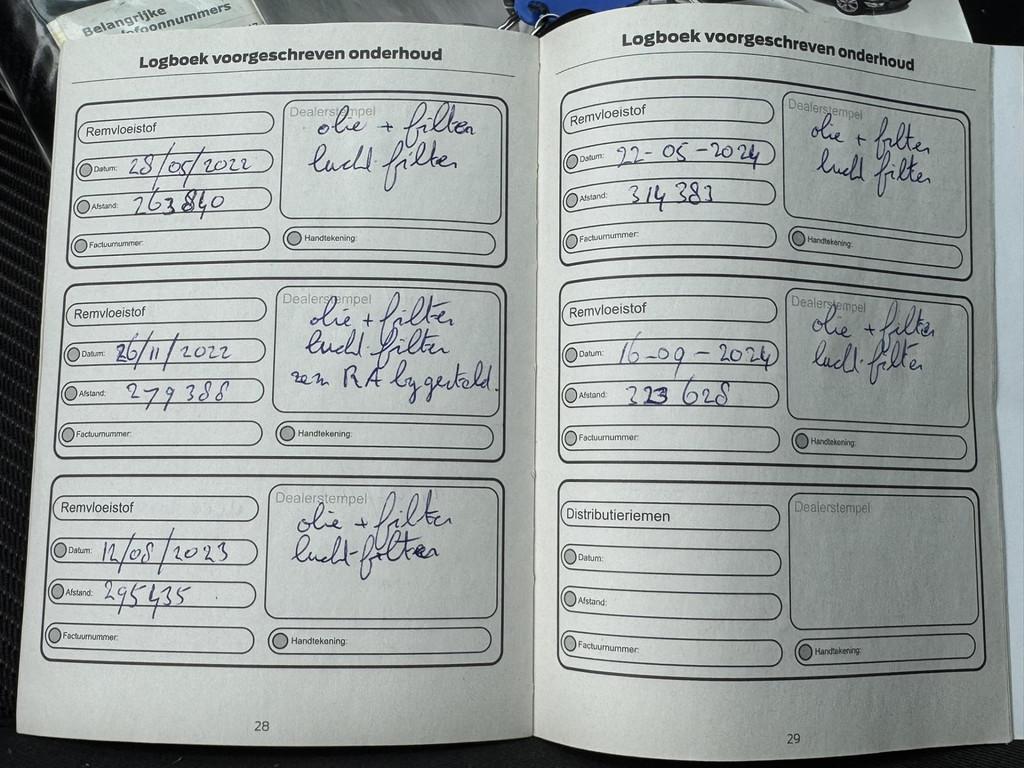 Belangrijke
telefoonnummers
Logboek voorgeschreven onderhoud
Remvloeistof
Datum: 28/05/2022
Afstand: 263840
Factuurnummer:
Dealerstempel
olie + filter
lucht filter
Handtekening:
Remvloeistof
Datum: 26/11/2022
Afstand: 279388
Factuurnummer:
Dealerstempel
olie + filter
lucht filter
rem RA bygesteld.
Handtekening:
Remvloeistof
Datum: 12/08/2023
Afstand: 295435
Factuurnummer:
Dealerstempel
olie + filter
lucht-filter
Handtekening:
28
Logboek voorgeschreven onderhoud
Remvloeistof
Datum: 22-05-2024
Afstand: 314 383
Factuurnummer:
Dealerstempel
olie + filter
lucht filter
Handtekening:
Remvloeistof
Datum: 16-09-2024
Afstand: 323 628
Factuurnummer:
Dealerstempel
olie + filter
lucht-filter
Handtekening:
Distributieriemen
Datum:
Afstand:
Factuurnummer:
Dealerstempel
Handtekening:
29